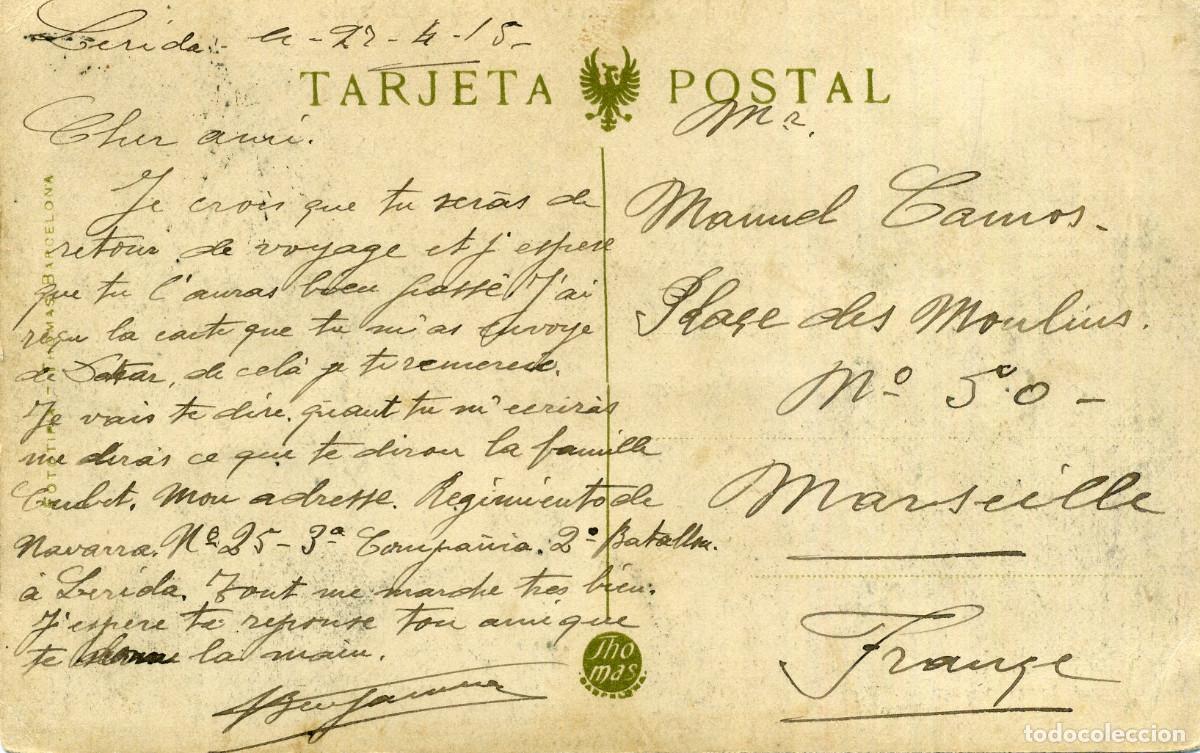 Lerida - a - 27 - 4 - 15 -
TARJETA POSTAL
Cher ami.
Je crois que tu serás de
retour de voyage et j'espere
que tu l'auras bien passé. J'ai
reçu la carte que tu m'as envoye
de Dakar, de celà je te remercie.
Je vais te dire, quant tu m'ecriràs
me diràs ce que te diron la famille
Mon adresse. Regimiento de
Navarra. Nº 25 - 3ª Compañia. 2º Batallon.
à Lerida. Tout me marche tres bien.
J'espere ta reponse ton ami que
te la main.
Benjamin
Mr.
Manuel Camos -
Plage des Moulins.
Nº 50 -
Marseille
France
FOTOTIPIA - THOMAS - BARCELONA
Thomas
BARCELONA
todocoleccion